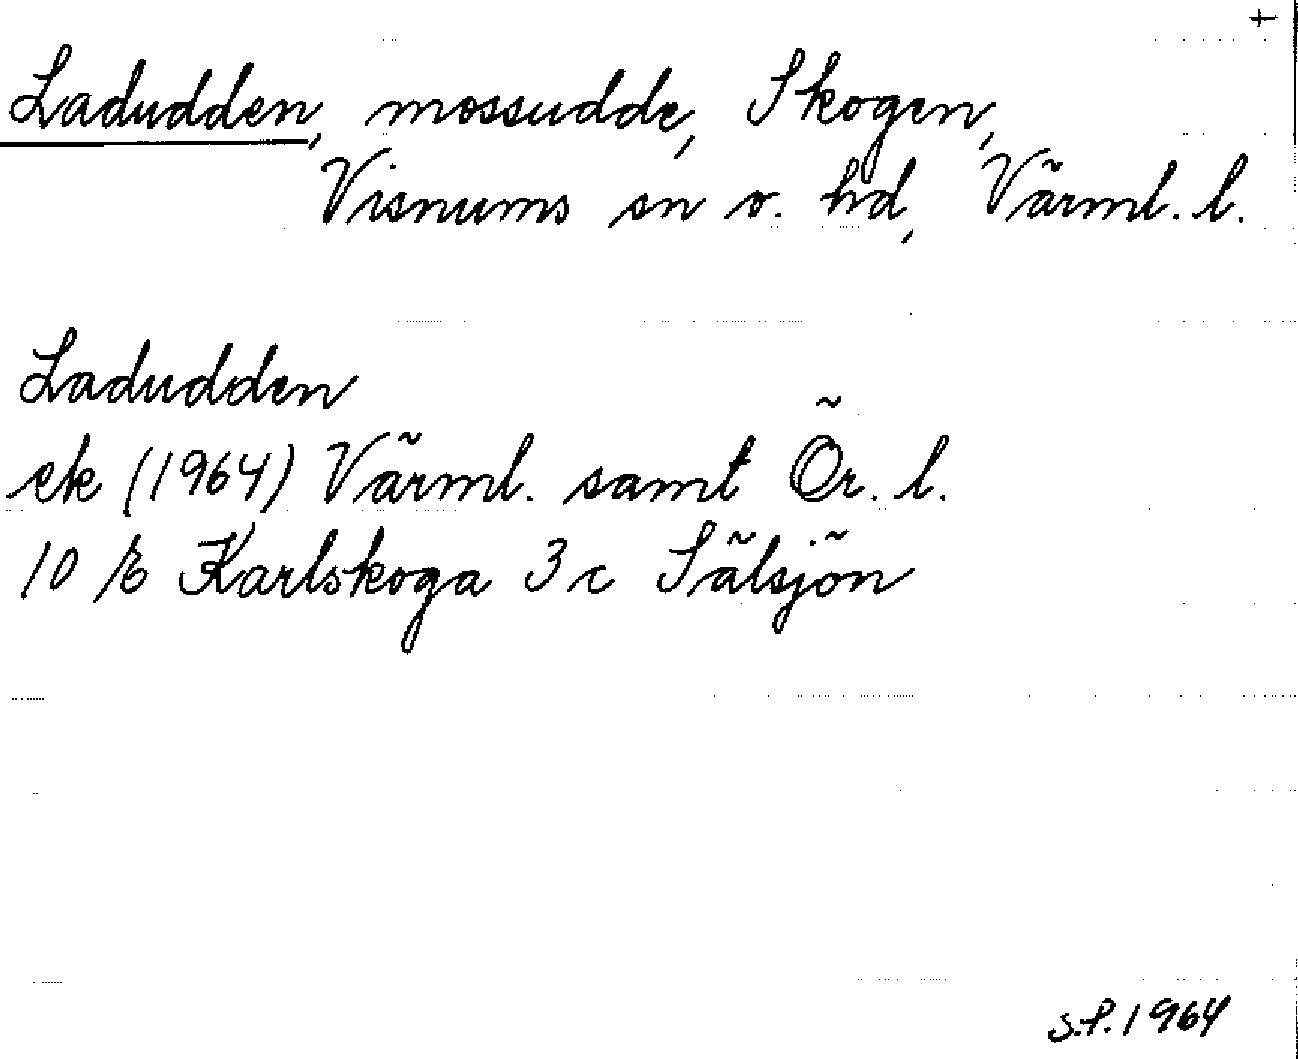 +
Ladudden, mossudde, Skogen,
Visnums sn o. hd, Värml. l.
Ladudden
ek (1964) Värml. samt Ör. l.
10 E Karlskoga 3 c Sälsjön
S.P. 1964